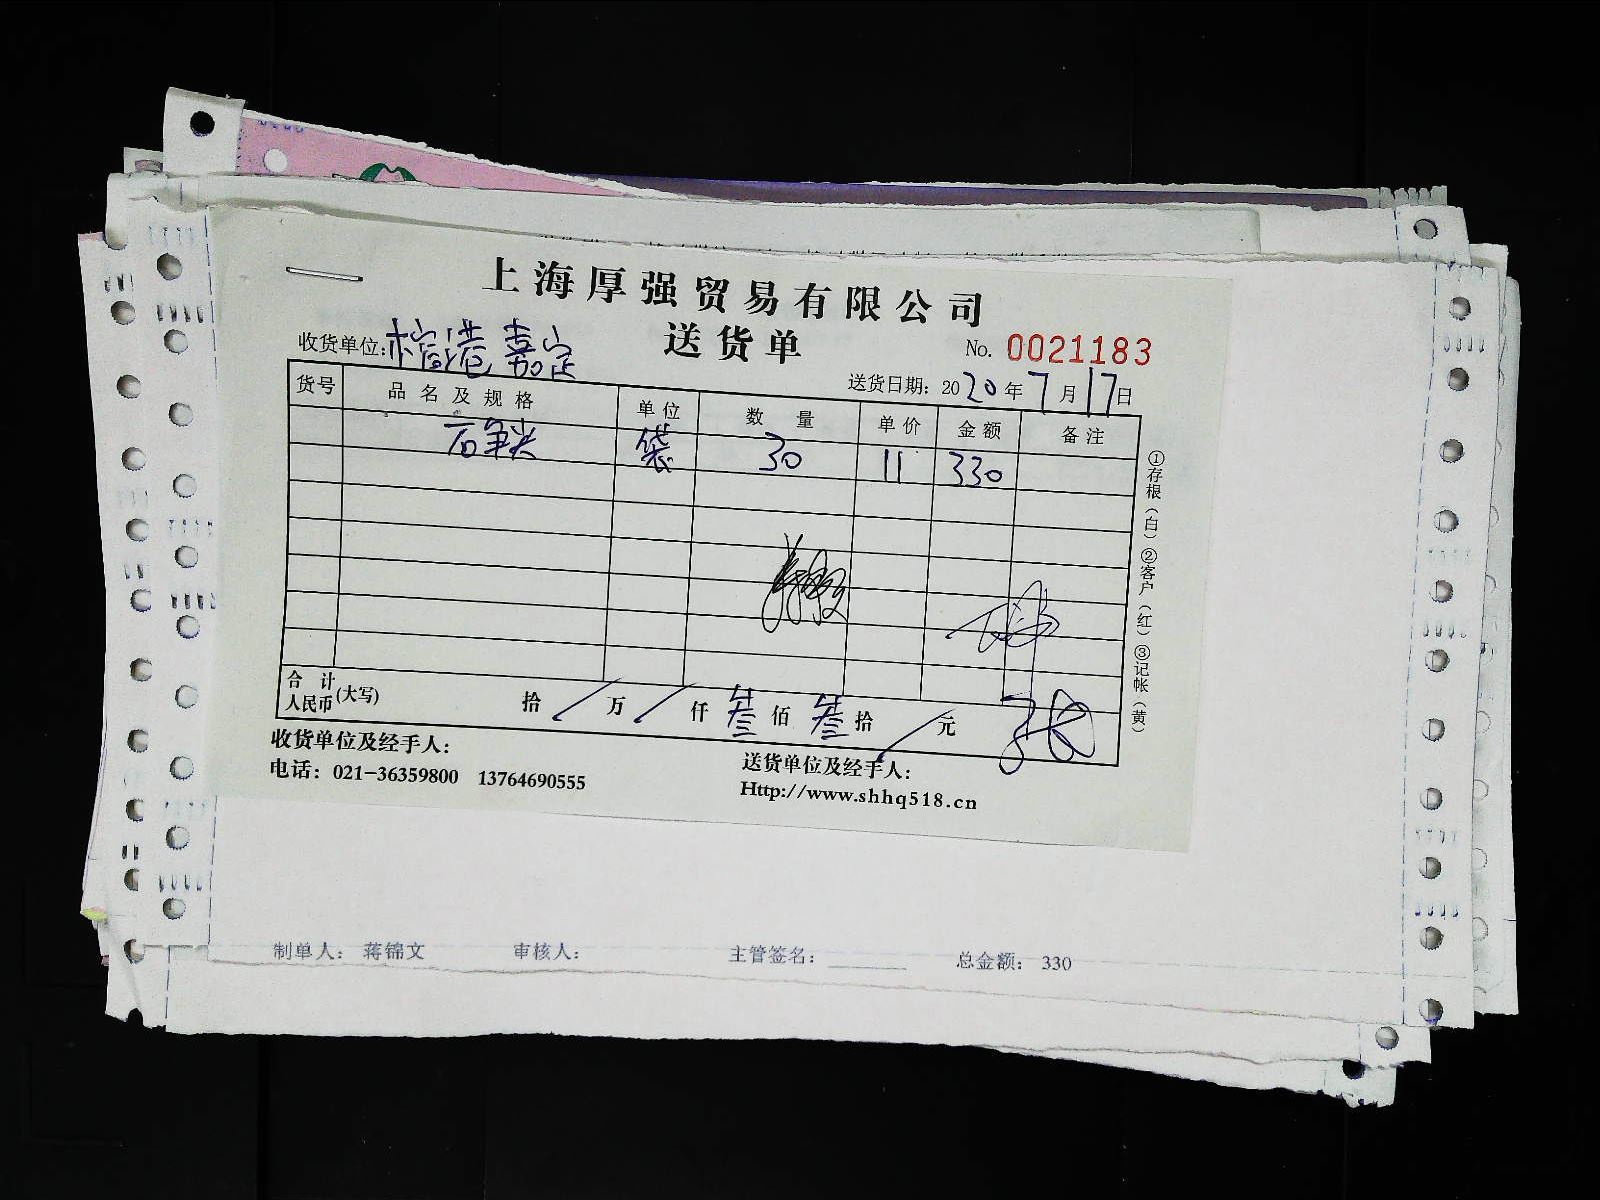 上海厚强贸易有限公司
送货单
No. 0021183
收货单位:檀港 嘉定
送货日期: 2020年7月17日
货号 品名及规格 单位 数量 单价 金额 备注
袋 30 11 330
合计人民币(大写) 拾/万/仟叁佰叁拾/元
收货单位及经手人:
送货单位及经手人:
电话: 021-36359800 13764690555
Http://www.shhq518.cn
①存根(白)②客户(红)③记帐(黄)
制单人: 蒋锦文 审核人: 主管签名: 总金额: 330